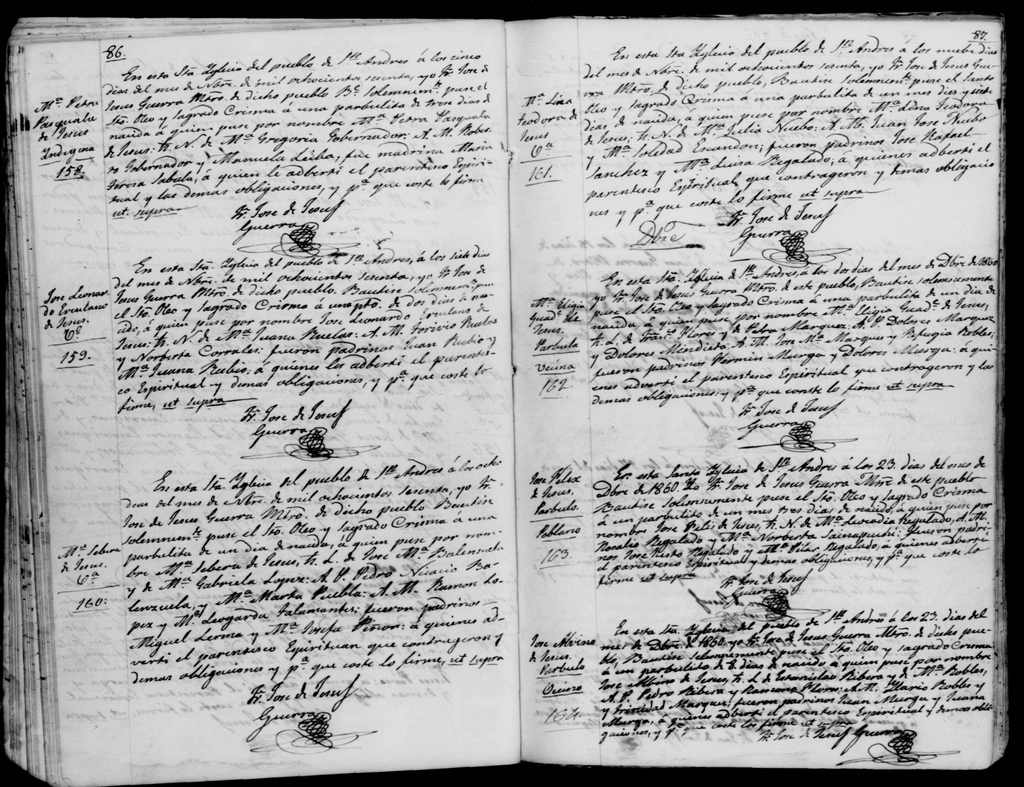 86.
En esta Sta. Yglecia del pueblo de Sn. Andres á los cinco
dias del mes de Nbre. de mil ochocientos sesenta, yo Fr. Jose de
Jesus Guerra Mtro. de dicho pueblo Bé. Solemnimte. puse el
Sto. Oleo y Sagrado Crisma á una parbulita de tres dias de
nacida á quien puse por nombre Ma. Petra Pasquala
de Jesus: h. N. de Ma. Gregoria Gobernador: A. M.
Gobernador y Manuela fue madrina Maria
Teresa á quien le adberti el parentico Espiri-
tual y las demas obligaciones, y pa. que coste lo firme
ut supra
Fr. Jose de Jesus
Guerra
Ma. Petra
Pasquala
de Jesus
Yndigena
158.
En esta Sta. Yglecia del pueblo de Sn. Andres, á los siete dias
del mes de Nbre. de mil ochocientos sesenta, yo Fr. Jose de
Jesus Guerra Mtro. de dicho pueblo. Bautise solemnemte. puse
el Sto. Oleo y Sagrado Crisma á un pto. de dos dias de na-
cido, á quien puse por nombre Jose Leonardo Erculano de
Jesus: h. N. de Ma. Juana Ruelas: A. M. Torivio Ruelas
y Norberta Corrales: fueron padrinos Juan Rubio y
Ma. Juana Rubio, á quienes les adberti el parentes-
co Espiritual y demas obligaciones, y pa. que coste lo
firme, ut supra
Fr. Jose de Jesus
Guerra
Jose Leonar-
do Erculano
de Jesus.
159.
En esta Sta. Yglecia del pueblo de Sn. Andres á los ocho
dias del mes de Nbre. de mil ochocientos sesenta, yo Fr.
Jose de Jesus Guerra Mtro. de dicho pueblo Bautise
solemnemte. puse el Sto. Oleo y Sagrado Crisma á una
parbulita de un dia de nacida, á quien puse por nom-
bre Ma. Sebera de Jesus, h. L. de Jose Ma. Balensuela
y de Ma. Gabriela Lopez: A. P. Pedro Nicacio Ba-
lenzuela, y Ma. Marta Puebla: A. M. Ramon Lo-
pez y Ma. Leogarda Talamantes: fueron padrinos
Miguel Lerma y Ma. Josefa Piñon: á quienes ad-
verti el parentisco Espirituan que contrageron y
demas obligaciones y pa. que coste lo firme, ut supra
Fr. Jose de Jesus
Guerra
Ma. Sebera
de Jesus.
160.
87.
En esta Sta. Yglecia del pueblo de Sn. Andres á los nuebe dias
del mes de Nbre. de mil ochocientos sesenta, yo Fr. Jose de Jesus Gue-
rra Mtro. de dicho pueblo, Bautise solemnemte. puse el Santo
Oleo y Sagrado Crisma á una parbulita de un mes dies y siete
dias de nacida, á quien puse por nombre Ma. Lina Teodora
de Jesus, h. N. de Ma. Julia Nuebo: A. M. Juan Jose Nuebo
y Ma. Soledad Escandon; fueron padrinos Jose Rafael
Sanchez y Ma. Luisa Regalado; á quienes adberti el
parentesco Espiritual que contrageron y demas obligacio-
nes y pa. que coste lo firme ut supra
Fr. Jose de Jesus
Guerra
Ma. Lina
Teodora de
Jesus
161.
Dbre
En esta Sta. Yglecia de Sn. Andres, á los dos dias del mes de Dbre. de 1860
yo Fr. Jose de Jesus Guerra Mtro. de este pueblo, Bautise solemnemente
puse el Sto. Oleo y Sagrado Crisma á una parbulita de un dia de
nacida á quien puse por nombre Ma. Eligia Guade. de Jesus,
h. L. de Flores y de Petra Marquez: A. P. Dolores Marquez
y Dolores Mendieta: A. M. Jose Ma. Marques y Refugia Robles,
fueron padrinos Fermin Murga y Dolores Murga: á qui-
enes adverti el parentesco Espiritual que contrageron y las
demas obligaciones; y pa. que coste lo firme ut supra
Fr. Jose de Jesus
Guerra
Ma. Eligia
Guade. de
Jesus.
Parbula
Vecina
162.
En esta Santa Yglecia de Sn. Andres á los 23. dias del mes de
Dbre. de 1860. Yo Fr. Jose de Jesus Guerra Mtro. de este pueblo
Bautise Solemnemente puse el Sto. Oleo y Sagrado Crisma
á un parbulito de un mes tres dias de nacido, á quien puse por
nombre Jose Felis de Jesus, h. N. de Ma. Regalado, A. M.
Regalado y Ma. Norberta fueron padri-
nos Jose Regalado y Ma. Pilar Regalado, á quienes adverti
el parentesco Espiritual y demas obligaciones, y pa. que coste lo
firme ut supra
Fr. Jose de Jesus
Guerra
Jose Felix
de Jesus.
Parbulo.
Poblano
163.
En esta Sta. Yglecia del pueblo de Sn. Andres á los 23. dias del
mes de Dbre. de 1860. yo Fr. Jose de Jesus Guerra Mtro. de dicho pue-
blo, Bautise solemnemente puse el Sto. Oleo y sagrado Crisma
á un parbulito de 8 dias de nacido á quien puse por nombre
Jose Albino de Jesus, h. L. de Estanislao Ribera y de Ma. Robles,
A. P. Pedro Ribera y Ramona Flores: A. M. Ylario Robles
y Trinidad Marquez: fueron padrinos Juan Murga y Juana
Murga, á quienes adberti el parentesco Espiritual y demas obli-
gaciones, y pa. que coste lo firme ut supra
Fr. Jose de Jesus Guerra
Jose Albino
de Jesus.
Parbulo
164.